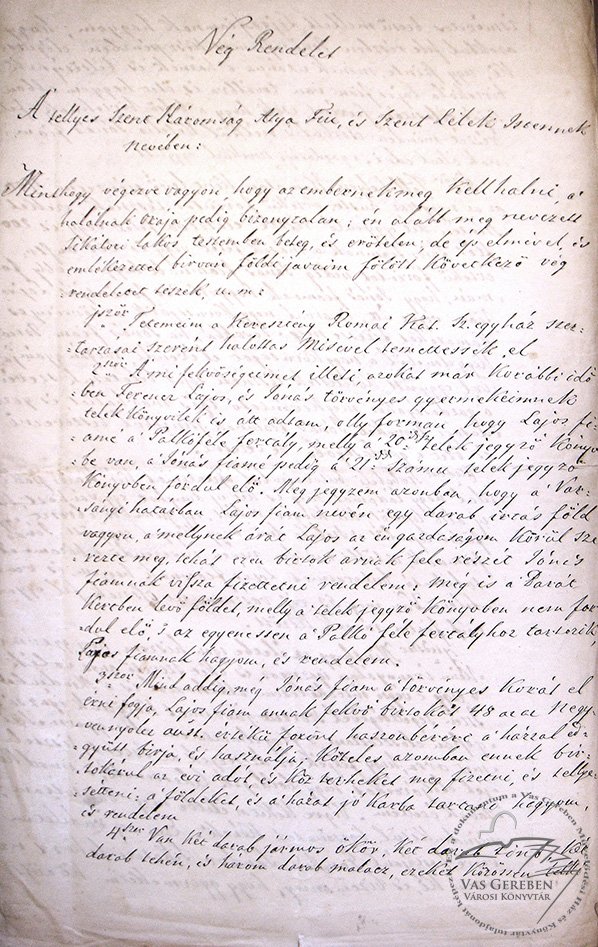 Vég Rendelet
A tellyes Szent Háromság Atya Fiu, és Szent Lélek Istennek
nevében:
Minthogy végezve vagyon, hogy az embernek meg kell halni, a'
halálnak oraja pedig bizonytalan; én alább meg nevezett
lakós testemben beteg, és erőtelen, de ép elmével, és
emlékezettel birván földi javaim fölött következő vég
rendeletet teszek, u. m:
1ször Tetemeim a Keresztény Romai Kat. Sz. egyház szer-
tartásai szerént halottas Misével temettessék el
2szor A mi fekvőségeimet illeti, azokat már korábbi idő
ben Ferencz Lajos, és Jónás törvényes gyermekeimnek
telek könyvileg is átt adtam, olly formán hogy Lajos fi-
amé a Palkóféle fertály, melly a 20 telek jegyző Köny
be van, a Jónás fiamé pedig a 21 Számu telek jegyző
Könyvben fordul elő. Meg jegyzem azonban, hogy a Var-
sányi határban Lajos fiam nevén egy darab irtás föld
vagyon, a'mellynek árát Lajos az én gazdaságom körül sze
rezte meg, tehát ezen birtok árnak fele részit Jónás
fiamnak vissza fizettetni rendelem: még is a Darát
Kertben lévő földet, melly a telek jegyző Könyvben nem for
dul elő, s az egyenessen a Palkó féle fertályhoz tartozik,
Lajos fiamnak hagyom, és rendelem.
3szor Mind addig, még Jónás fiam a törvényes korát el
érni fogja, Lajos fiam annak fekvő birtokát 48 azaz negy
vennyolcz aust. értékű forint haszonbérért a házzal e-
gyütt birja, és használja; Köteles azomban ennek bir-
tokárul az évi adót és köz terheket meg fizetni, és tellye-
sitteni: a földeket, és a házat jó karba tartani hagyom,
és rendelem
4szer Van két darab jármos ökör, két darab két
darab tehén, és három darab malacz, ezeket közössen
VAS GEREBEN
VÁROSI KÖNYVTÁR